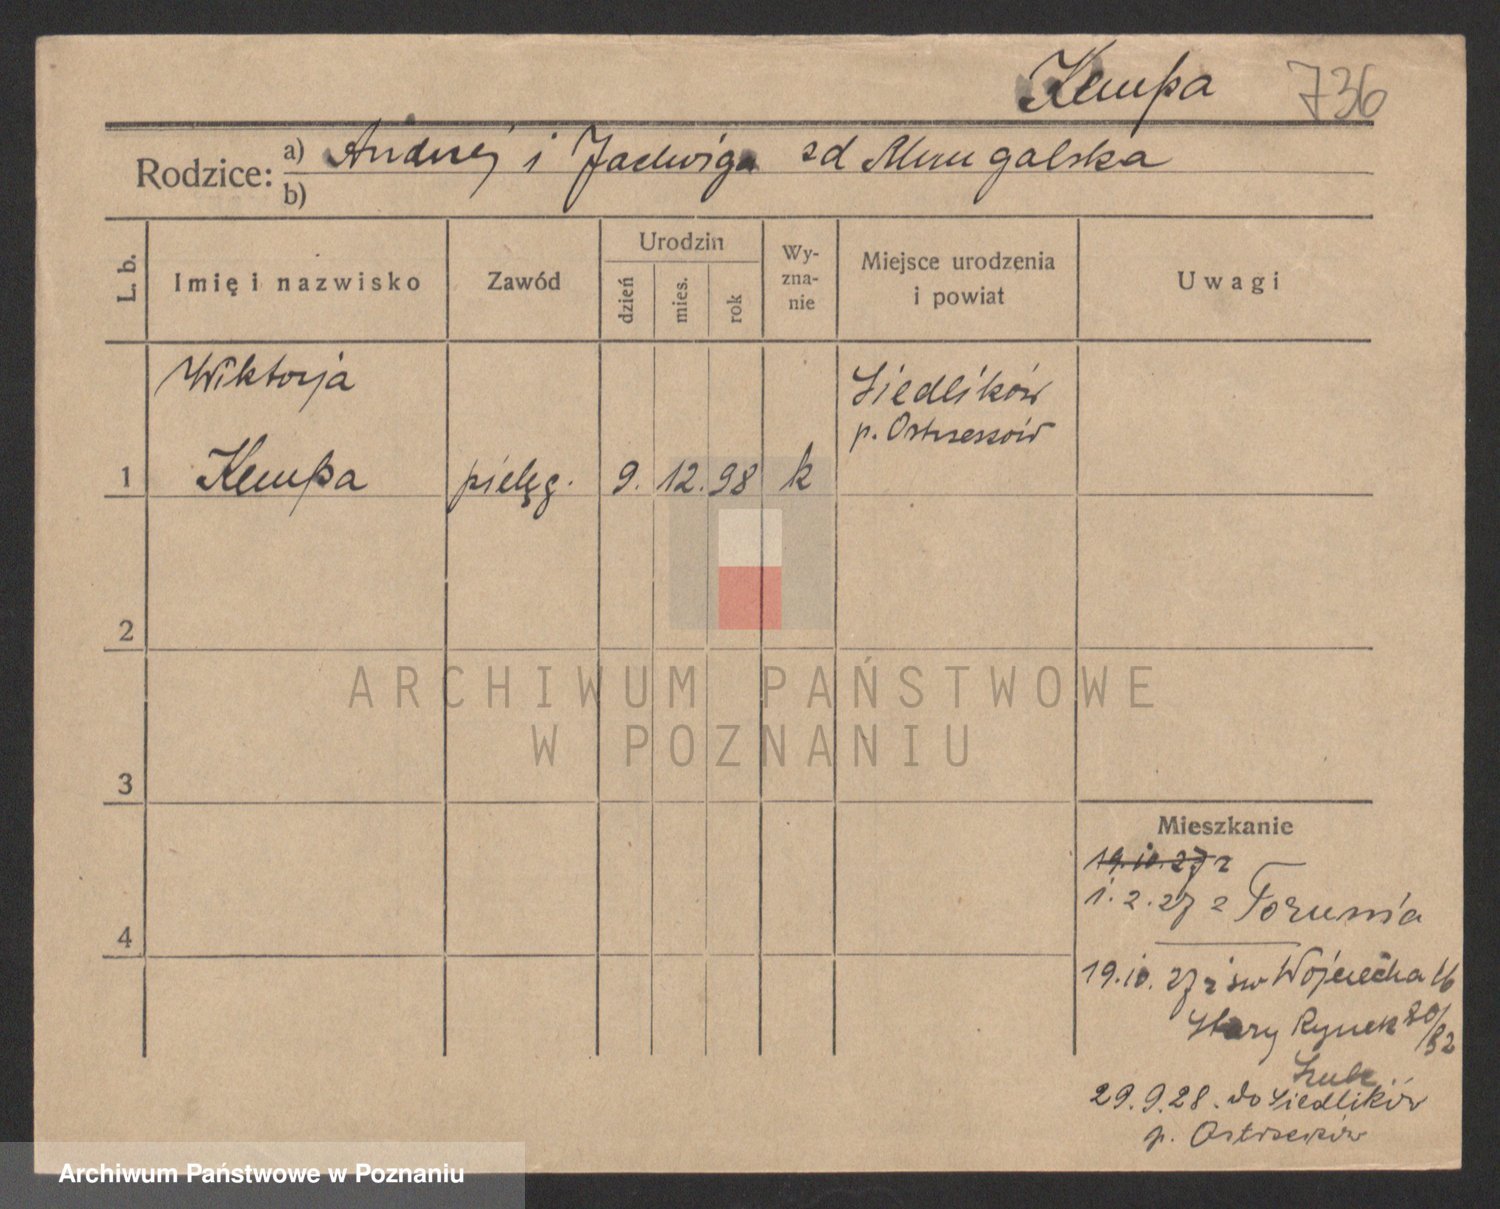 Kempa 736
Rodzice: a) Andrzej i Jadwiga zd Mrugalska
b)
L. b. Imię i nazwisko Zawód Urodzin dzień mies. rok Wy-zna-nie Miejsce urodzenia i powiat Uwagi
Wiktorja Siedlików
p. Ostrzeszów
1 Kempa pielęg. 9. 12. 98 k
2
ARCHIWUM PAŃSTWOWE
W POZNANIU
3
Mieszkanie
19.10.27 z
1.2.27 z Torunia
4
19.10.27 z św Wojciecha 16
Stary Rynek 80/82
29.9.28. do Siedlików
p. Ostrzeszów
Archiwum Państwowe w Poznaniu